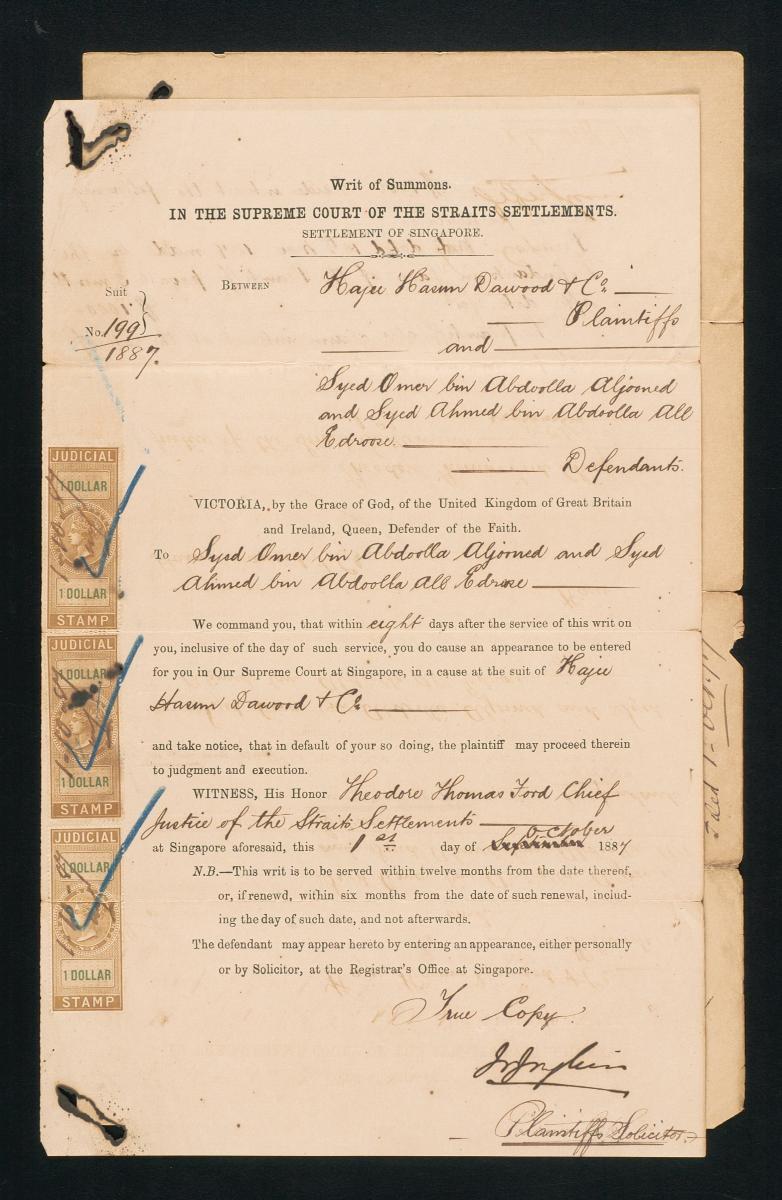 Writ of Summons.
IN THE SUPREME COURT OF THE STRAITS SETTLEMENTS.
SETTLEMENT OF SINGAPORE.
Suit
No. 199
1887.
BETWEEN Hajee Hasum Dawood & Co.
Plaintiffs
and
Syed Omer bin Abdoolla Aljooned
and Syed Ahmed bin Abdoolla All
Edroose.
Defendants.
VICTORIA, by the Grace of God, of the United Kingdom of Great Britain
and Ireland, Queen, Defender of the Faith.
To Syed Omer bin Abdoolla Aljooned and Syed
Ahmed bin Abdoolla All Edrose
We command you, that within eight days after the service of this writ on
you, inclusive of the day of such service, you do cause an appearance to be entered
for you in Our Supreme Court at Singapore, in a cause at the suit of Hajee
Hasum Dawood & Co.
and take notice, that in default of your so doing, the plaintiff may proceed therein
to judgment and execution.
WITNESS, His Honor Theodore Thomas Ford Chief
Justice of the Straits Settlements
at Singapore aforesaid, this 1st day of October 1887
N.B.—This writ is to be served within twelve months from the date thereof,
or, if renewd, within six months from the date of such renewal, includ-
ing the day of such date, and not afterwards.
The defendant may appear hereto by entering an appearance, either personally
or by Solicitor, at the Registrar's Office at Singapore.
True Copy.
Plaintiffs Solicitor.
JUDICIAL
1 DOLLAR
1 DOLLAR
STAMP
JUDICIAL
1 DOLLAR
1 DOLLAR
STAMP
JUDICIAL
1 DOLLAR
1 DOLLAR
STAMP